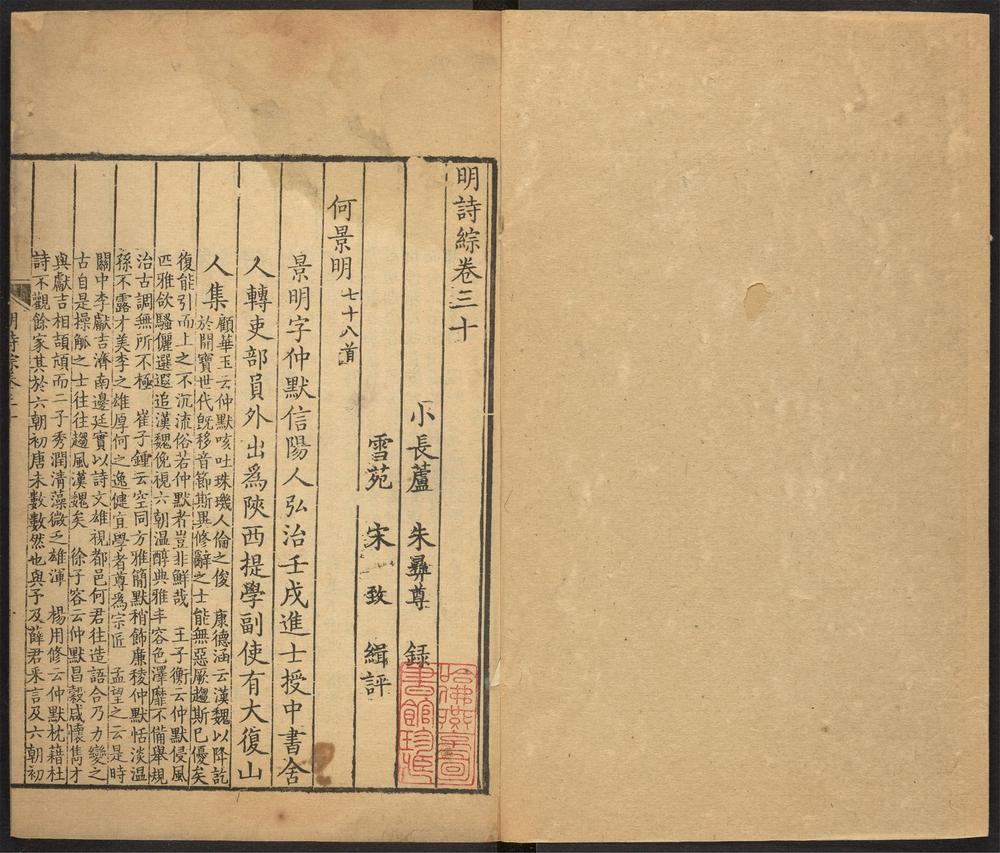 明詩綜卷三十
小長蘆 朱彝尊 録
雪苑 宋 致 緝評
何景明七十八首
景明字仲默信陽人弘治壬戌進士授中書舍
人轉吏部員外出爲陝西提學副使有大復山
人集 顧華玉云仲默咳吐珠璣人倫之俊 康德涵云漢魏以降訖
於開寶世代旣移音節斯異修辭之士能無惡厥趨斯已優矣
復能引而上之不沉流俗若仲默者豈非鮮哉 王子衡云仲默侵風
匹雅欲騷儷選遐追漢魏俛視六朝温醇典雅丰容色澤靡不備舉規
治古調無所不極 崔子鍾云空同方雅簡默稍飾廉稜仲默恬淡温
孫不露才美李之雄厚何之逸健宜學者尊爲宗匠 孟望之云是時
關中李獻吉濟南邊廷實以詩文雄視都邑何君往造語合乃力變之
古自是操觚之士往往趨風漢魏矣 徐子容云仲默昌穀咸懷雋才
與獻吉相頡頏而二子秀潤清藻微乏雄渾 楊用修云仲默枕藉杜
詩不觀餘家其於六朝初唐未數數然也與予及薛君采言及六朝初
哈佛燕京圖書館珍藏